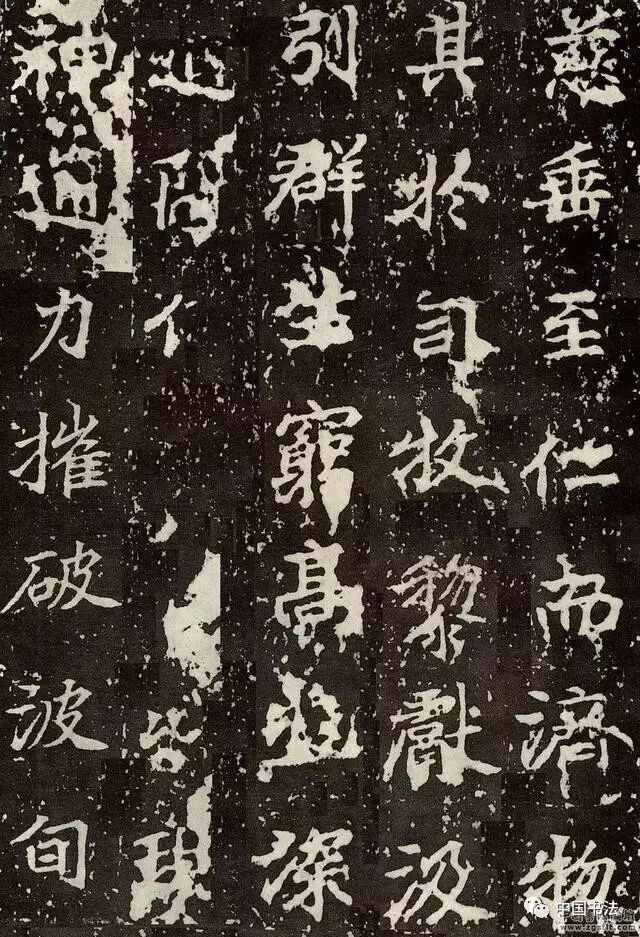 慈垂至仁而濟物
其於司牧黎獻汲
引群生窮高
深
皆現
神通力摧破波旬
中国书法